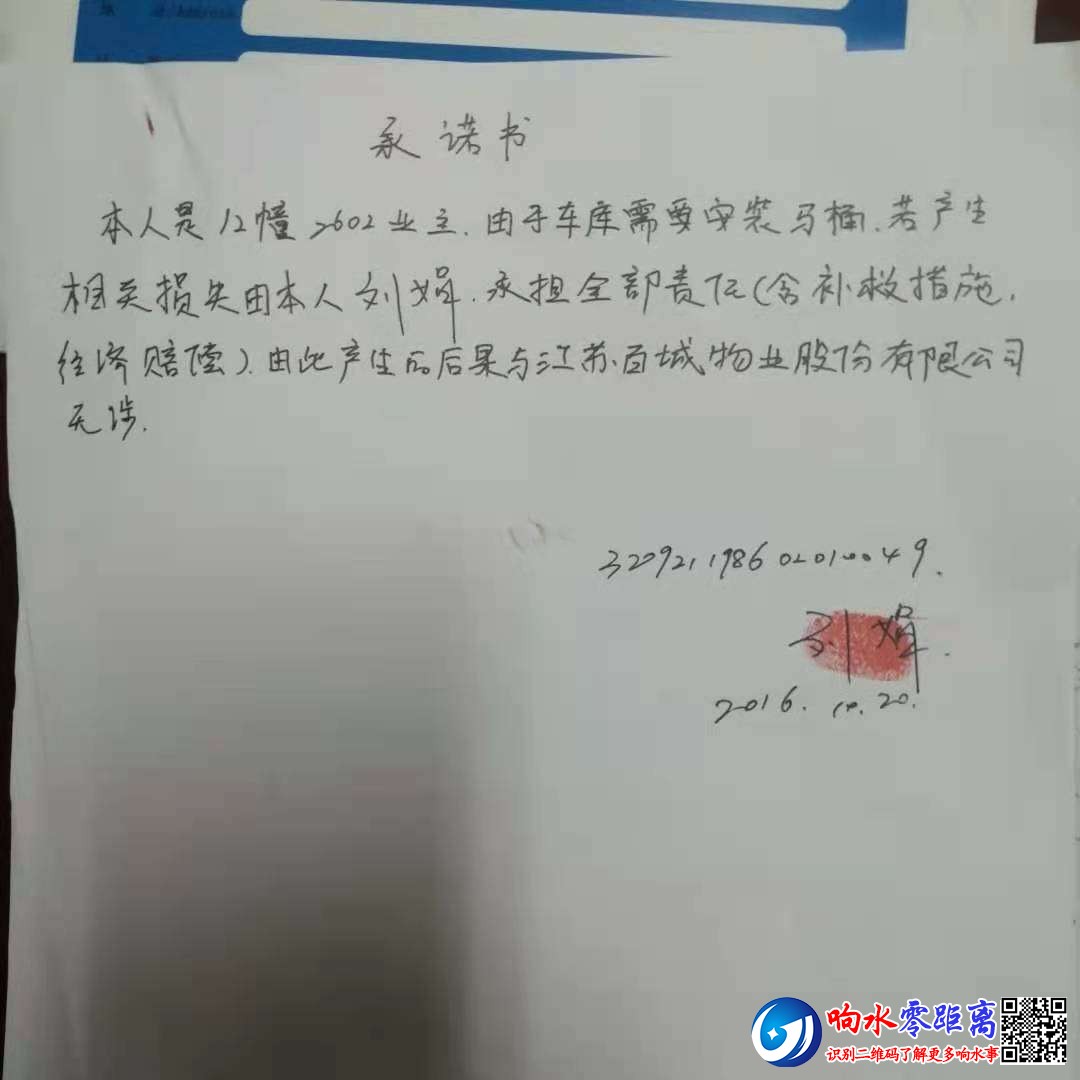 承诺书
本人是12幢2602业主.由于车库需要安装马桶.若产生
相关损失由本人刘娟.承担全部责任(含补救措施.
经济赔偿).由此产生的后果与江苏百城物业股份有限公司
无涉.
320921198602010049.
刘娟.
2016.10.20.
响水零距离
识别二维码了解更多响水事